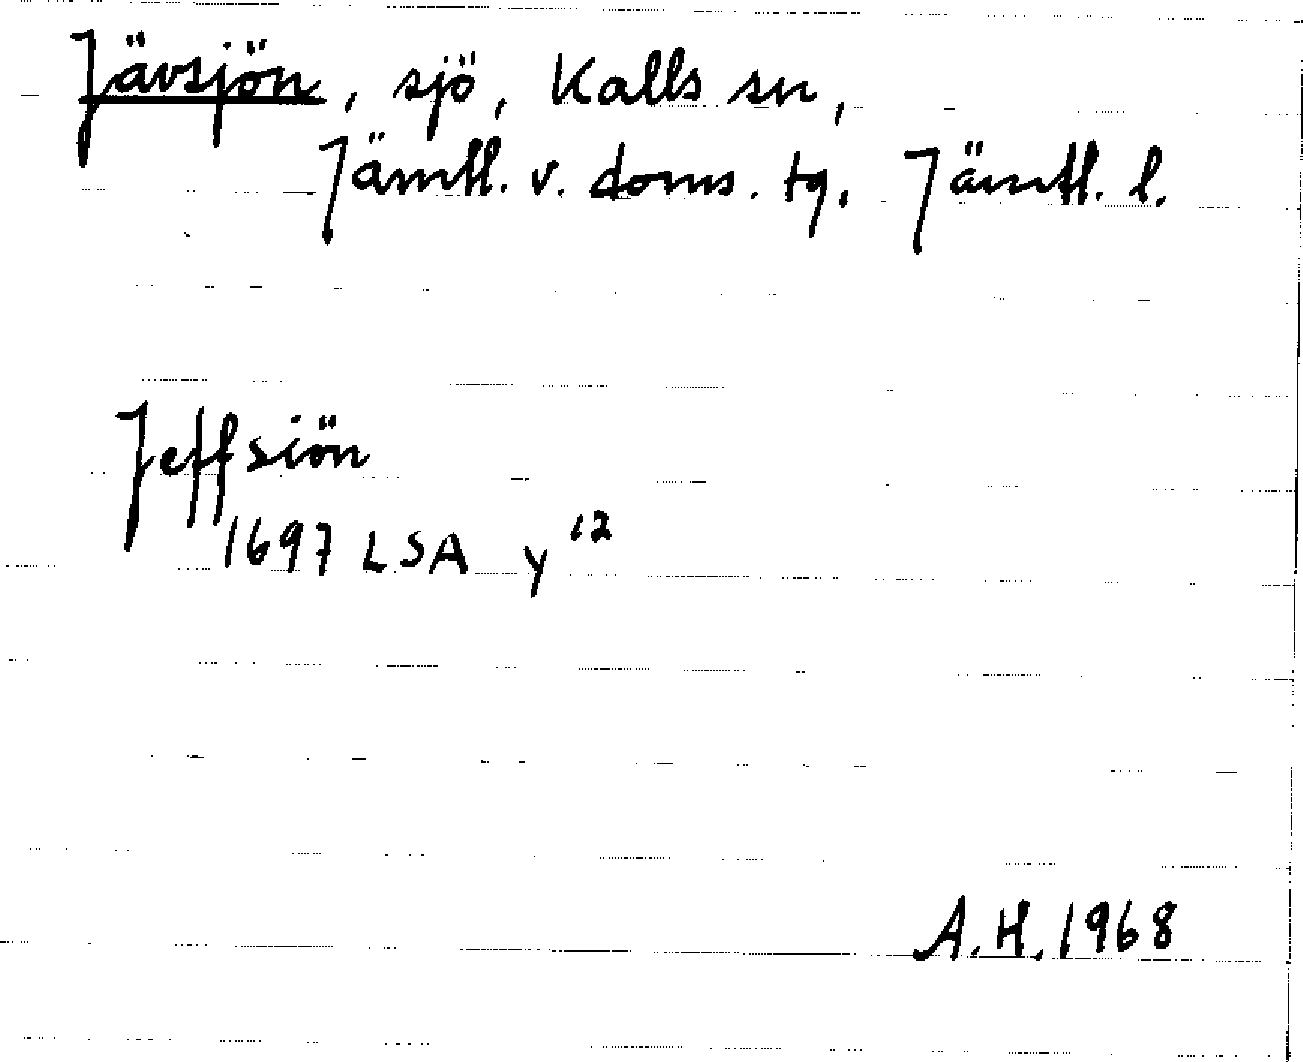 Jävsjön, sjö, Kalls sn,
Jämtl. v. doms. tg, Jämtl. l.
Jeffsiön
1697 LSA Y 12
A.H. 1968